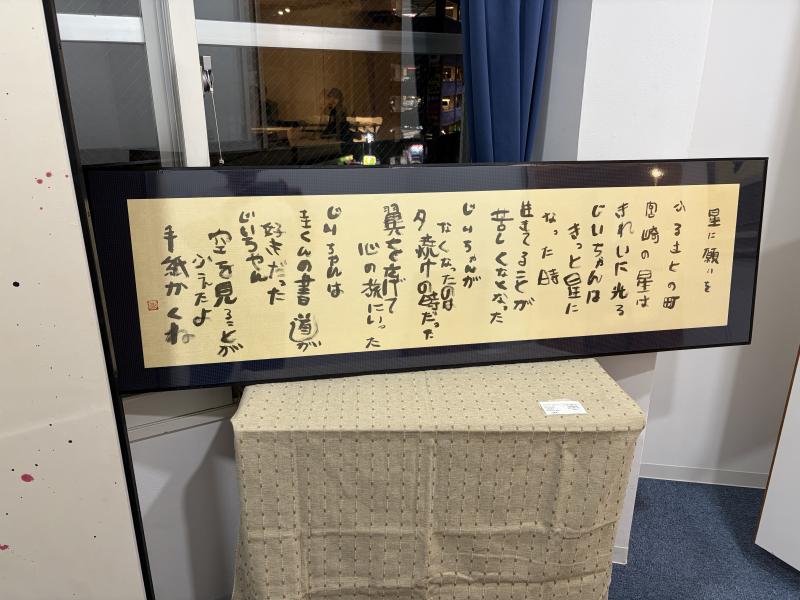 星に願いを
ふるさとの町
宮崎の星は
きれいに光る
じいちゃんは
きっと星に
なった時
生きてることが
苦しくなくなった
じいちゃんが
なくなったのは
夕焼けの時だった
翼を広げて
心の旅にいった
じいちゃんは
圭くんの書道が
好きだった
じいちゃん
空を見ることが
ふえたよ
手紙かくね